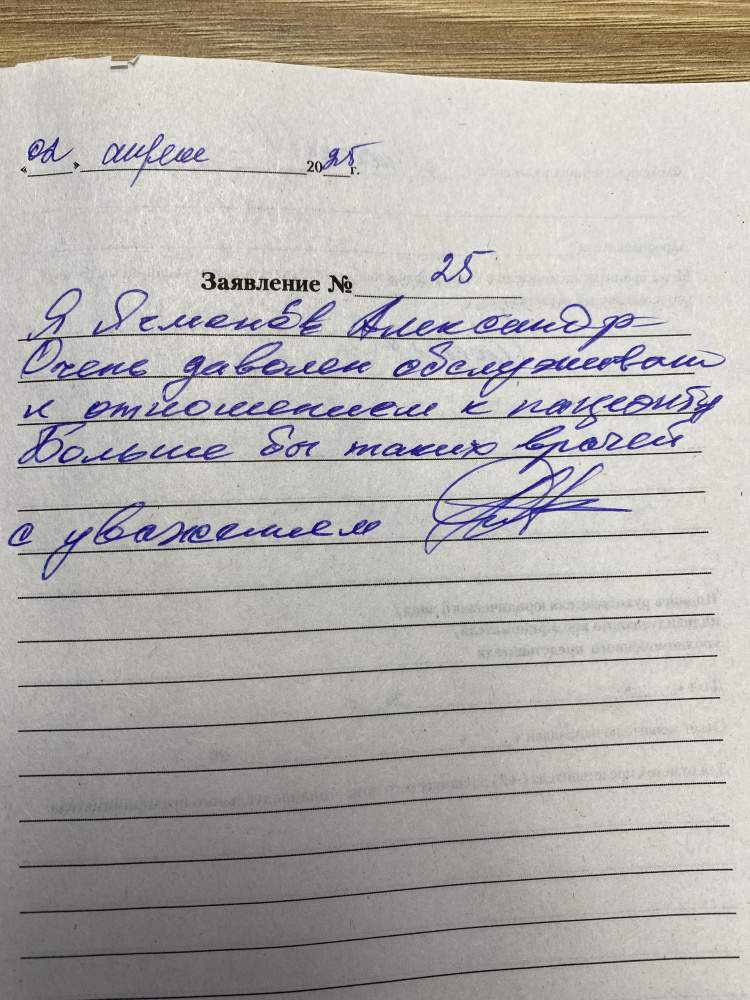 «02» апреля 2025г.
Заявление № 25
Я Ячменёв Александр
Очень даволен обслуживан
и отношением к пациенту
Больше бы таких врачей
с уважением